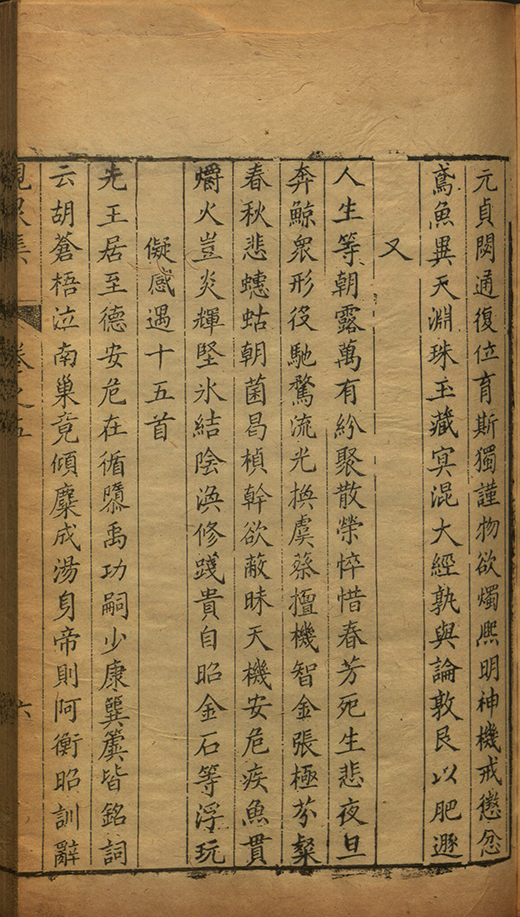 元貞閟通復位育斯獨謹物欲燭熈明神機戒懲忿
鳶魚異天淵珠玉藏冥混大經孰與論敦艮以肥遯
又
人生等朝露萬有紛聚散榮悴惜春芳死生悲夜旦
奔鯨衆形役馳騖流光換虞蔡擅機智金張極芬粲
春秋悲蟪蛄朝菌曷楨幹欲蔽昧天機安危疾魚貫
爝火豈炎輝堅氷結陰渙修踐貴自昭金石等浮玩
儗感遇十五首
先王居至德安危在循隳禹功嗣少康簨簴皆銘詞
云胡蒼梧泣南巢竟傾麋成湯身帝則阿衡昭訓辭
集 卷之五 六